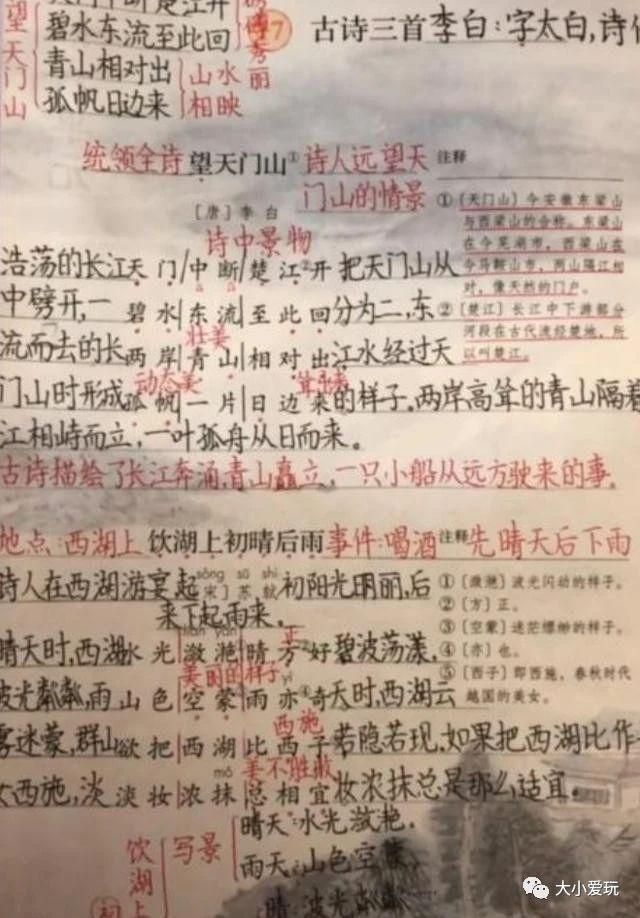 碧水东流至此回
青山相对出
孤帆日边来
望天门山
山水
相映
秀丽
17 古诗三首 李白：字太白，诗
统领全诗 望天门山① 诗人远望天
门山的情景
注释
[唐] 李白
诗中景物
①〔天门山〕今安徽东梁山
与西梁山的合称。东梁山
在今芜湖市，西梁山在
今马鞍山市，两山隔江相
对，像天然的门户。
②〔楚江〕长江中下游部分
河段在古代流经楚地，所
以叫楚江。
浩荡的长江 天门/中断/楚江②开 把天门山从
中劈开，一 碧水/东流/至此回 分为二，东
壮美
流而去的长 两岸/青山/相对出 江水经过天
动态美
门山时形成 孤帆/一片/日边来 的样子。两岸高耸的青山隔着
江相峙而立，一叶孤舟从日而来。
古诗描绘了长江奔涌，青山矗立，一只小船从远方驶来的事。
地点：西湖上 饮湖上初晴后雨 事件：喝酒 注释 先晴天后下雨
诗人在西湖游宴 起 sòng sū shì [宋] 苏轼 初阳光明丽，后
来下起雨来。
①〔潋滟〕波光闪动的样子。
②〔方〕正。
③〔空蒙〕迷茫缥缈的样子。
④〔亦〕也。
⑤〔西子〕即西施，春秋时代
越国的美女。
liàn yàn 正
晴天时，西湖 水光/潋滟/晴方②好 碧波荡漾，
美丽的样子 yì
波光粼粼，雨 山色/空蒙/雨亦④奇 天时，西湖云
西施
雾迷蒙，群山 欲把/西湖/比西子 若隐若现，如果把西湖比作
mò 美不胜收
西施，淡 淡妆/浓抹/总相宜 妆浓抹总是那么适宜。
饮湖上初
写景
晴天：水光潋滟。
雨天：山色空蒙
晴：波光粼粼
大小爱玩